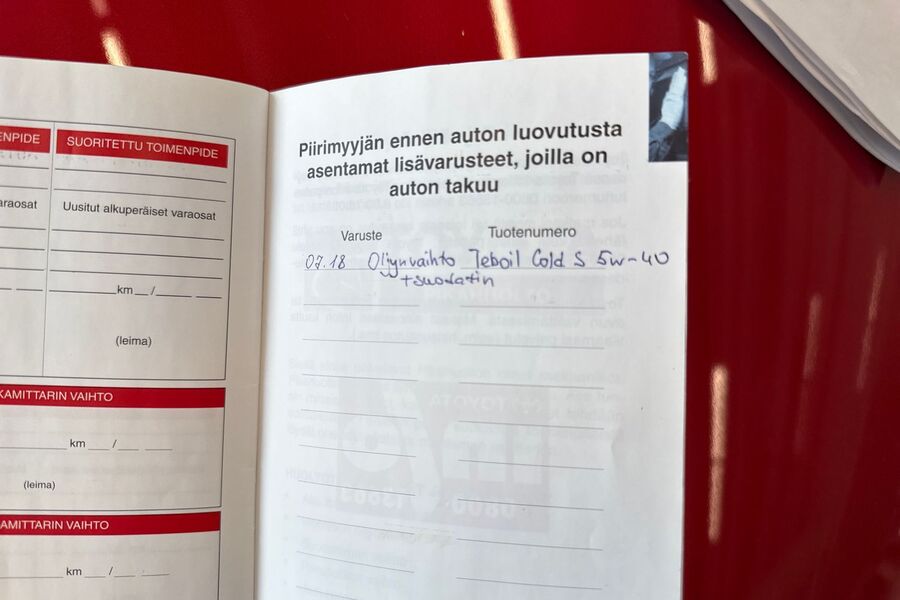 ENPIDE
SUORITETTU TOIMENPIDE
araosat
Uusitut alkuperäiset varaosat
km /
(leima)
KAMITTARIN VAIHTO
km /
(leima)
AMITTARIN VAIHTO
km /
Piirimyyjän ennen auton luovutusta
asentamat lisävarusteet, joilla on
auton takuu
Varuste Tuotenumero
07.18 Oljynvaihto Teboil Gold S 5w-40
+suodatin